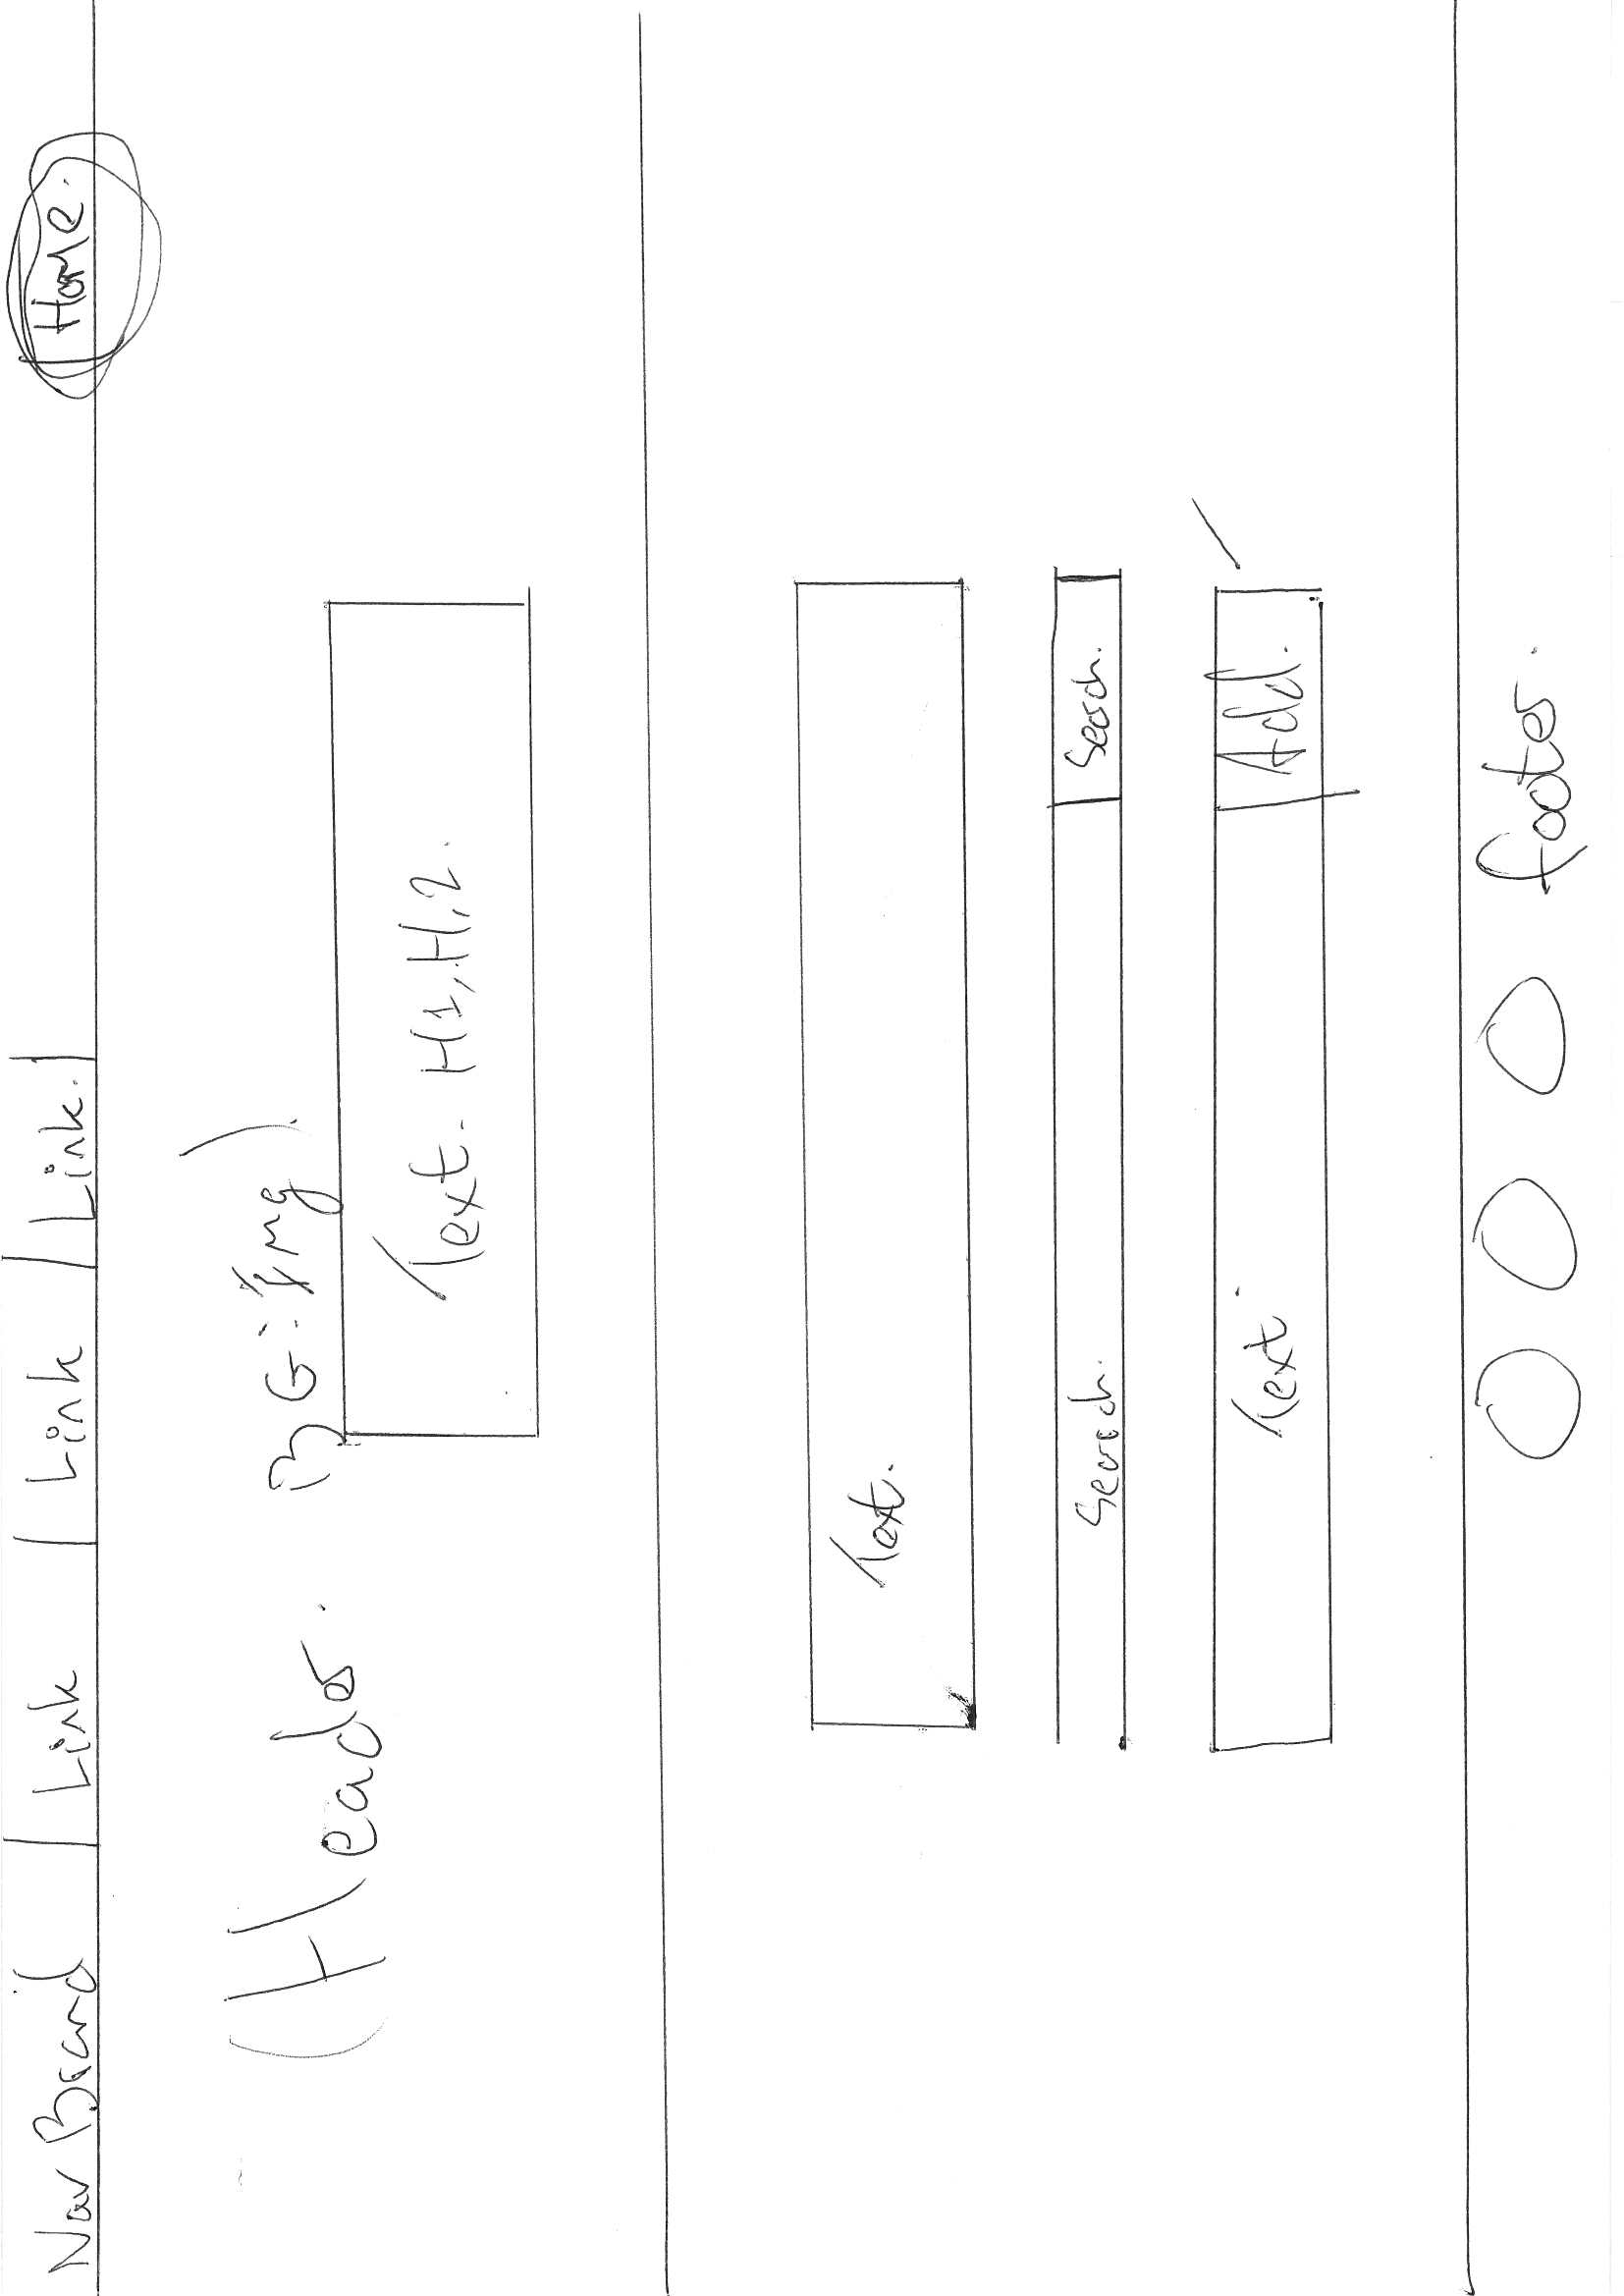 Nav Brand Link Link Link. Home.
(Header. BG: img).
Text. H1, H,2.
Text.
Search. Search.
Text. Add.
footer.